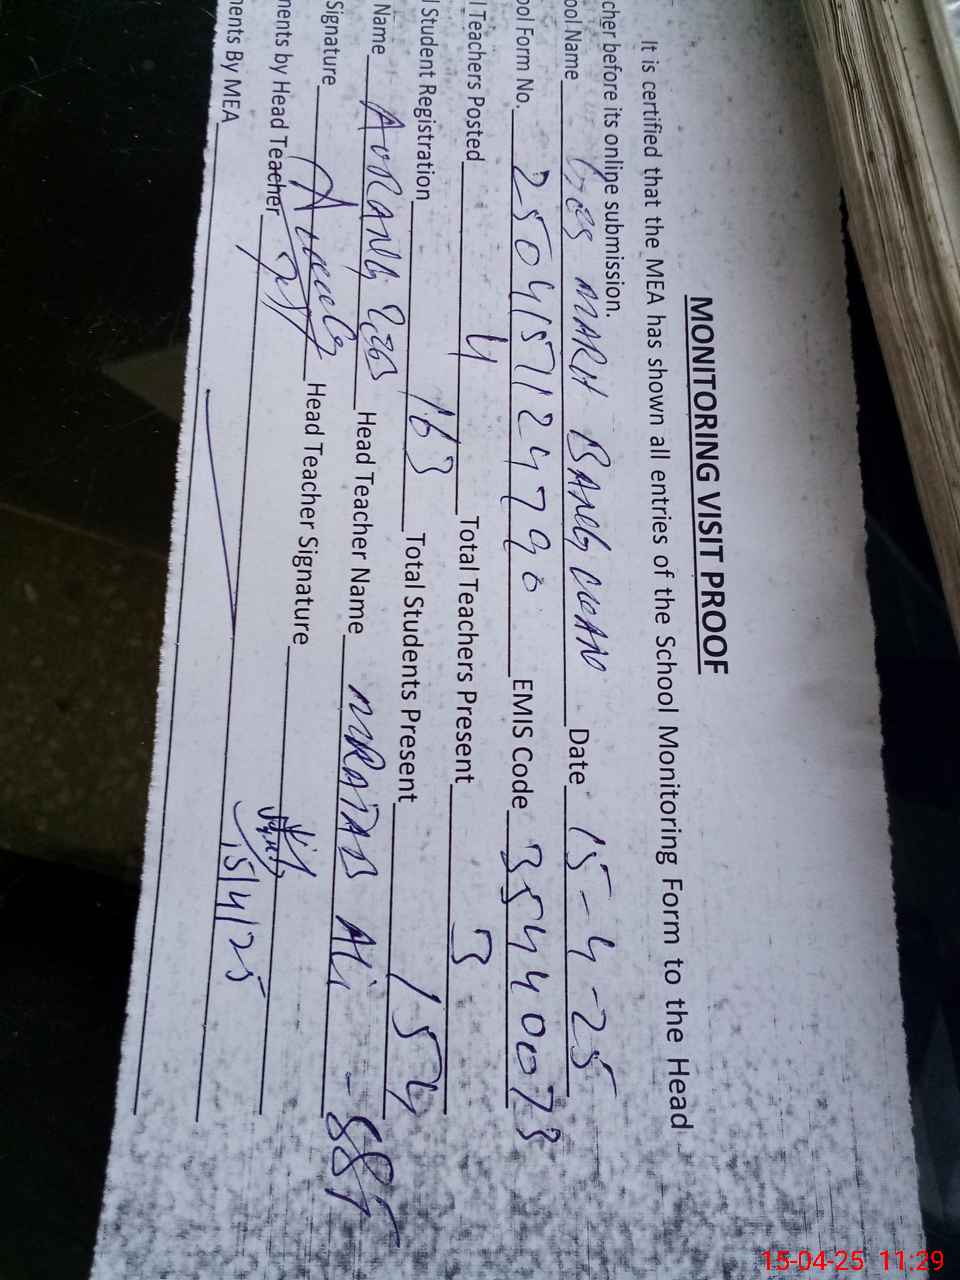 MONITORING VISIT PROOF
It is certified that the MEA has shown all entries of the School Monitoring Form to the Head
cher before its online submission.
ool Name MARH Date 15-4-25
ool Form No. 2504157124790 EMIS Code 35440073
l Teachers Posted 4 Total Teachers Present 3
l Student Registration 163 Total Students Present 154
Name AURANG Head Teacher Name MRATAB Ali - SST
Signature Head Teacher Signature
ments by Head Teacher
15/4/25
nents By MEA
15-04-25 11:29